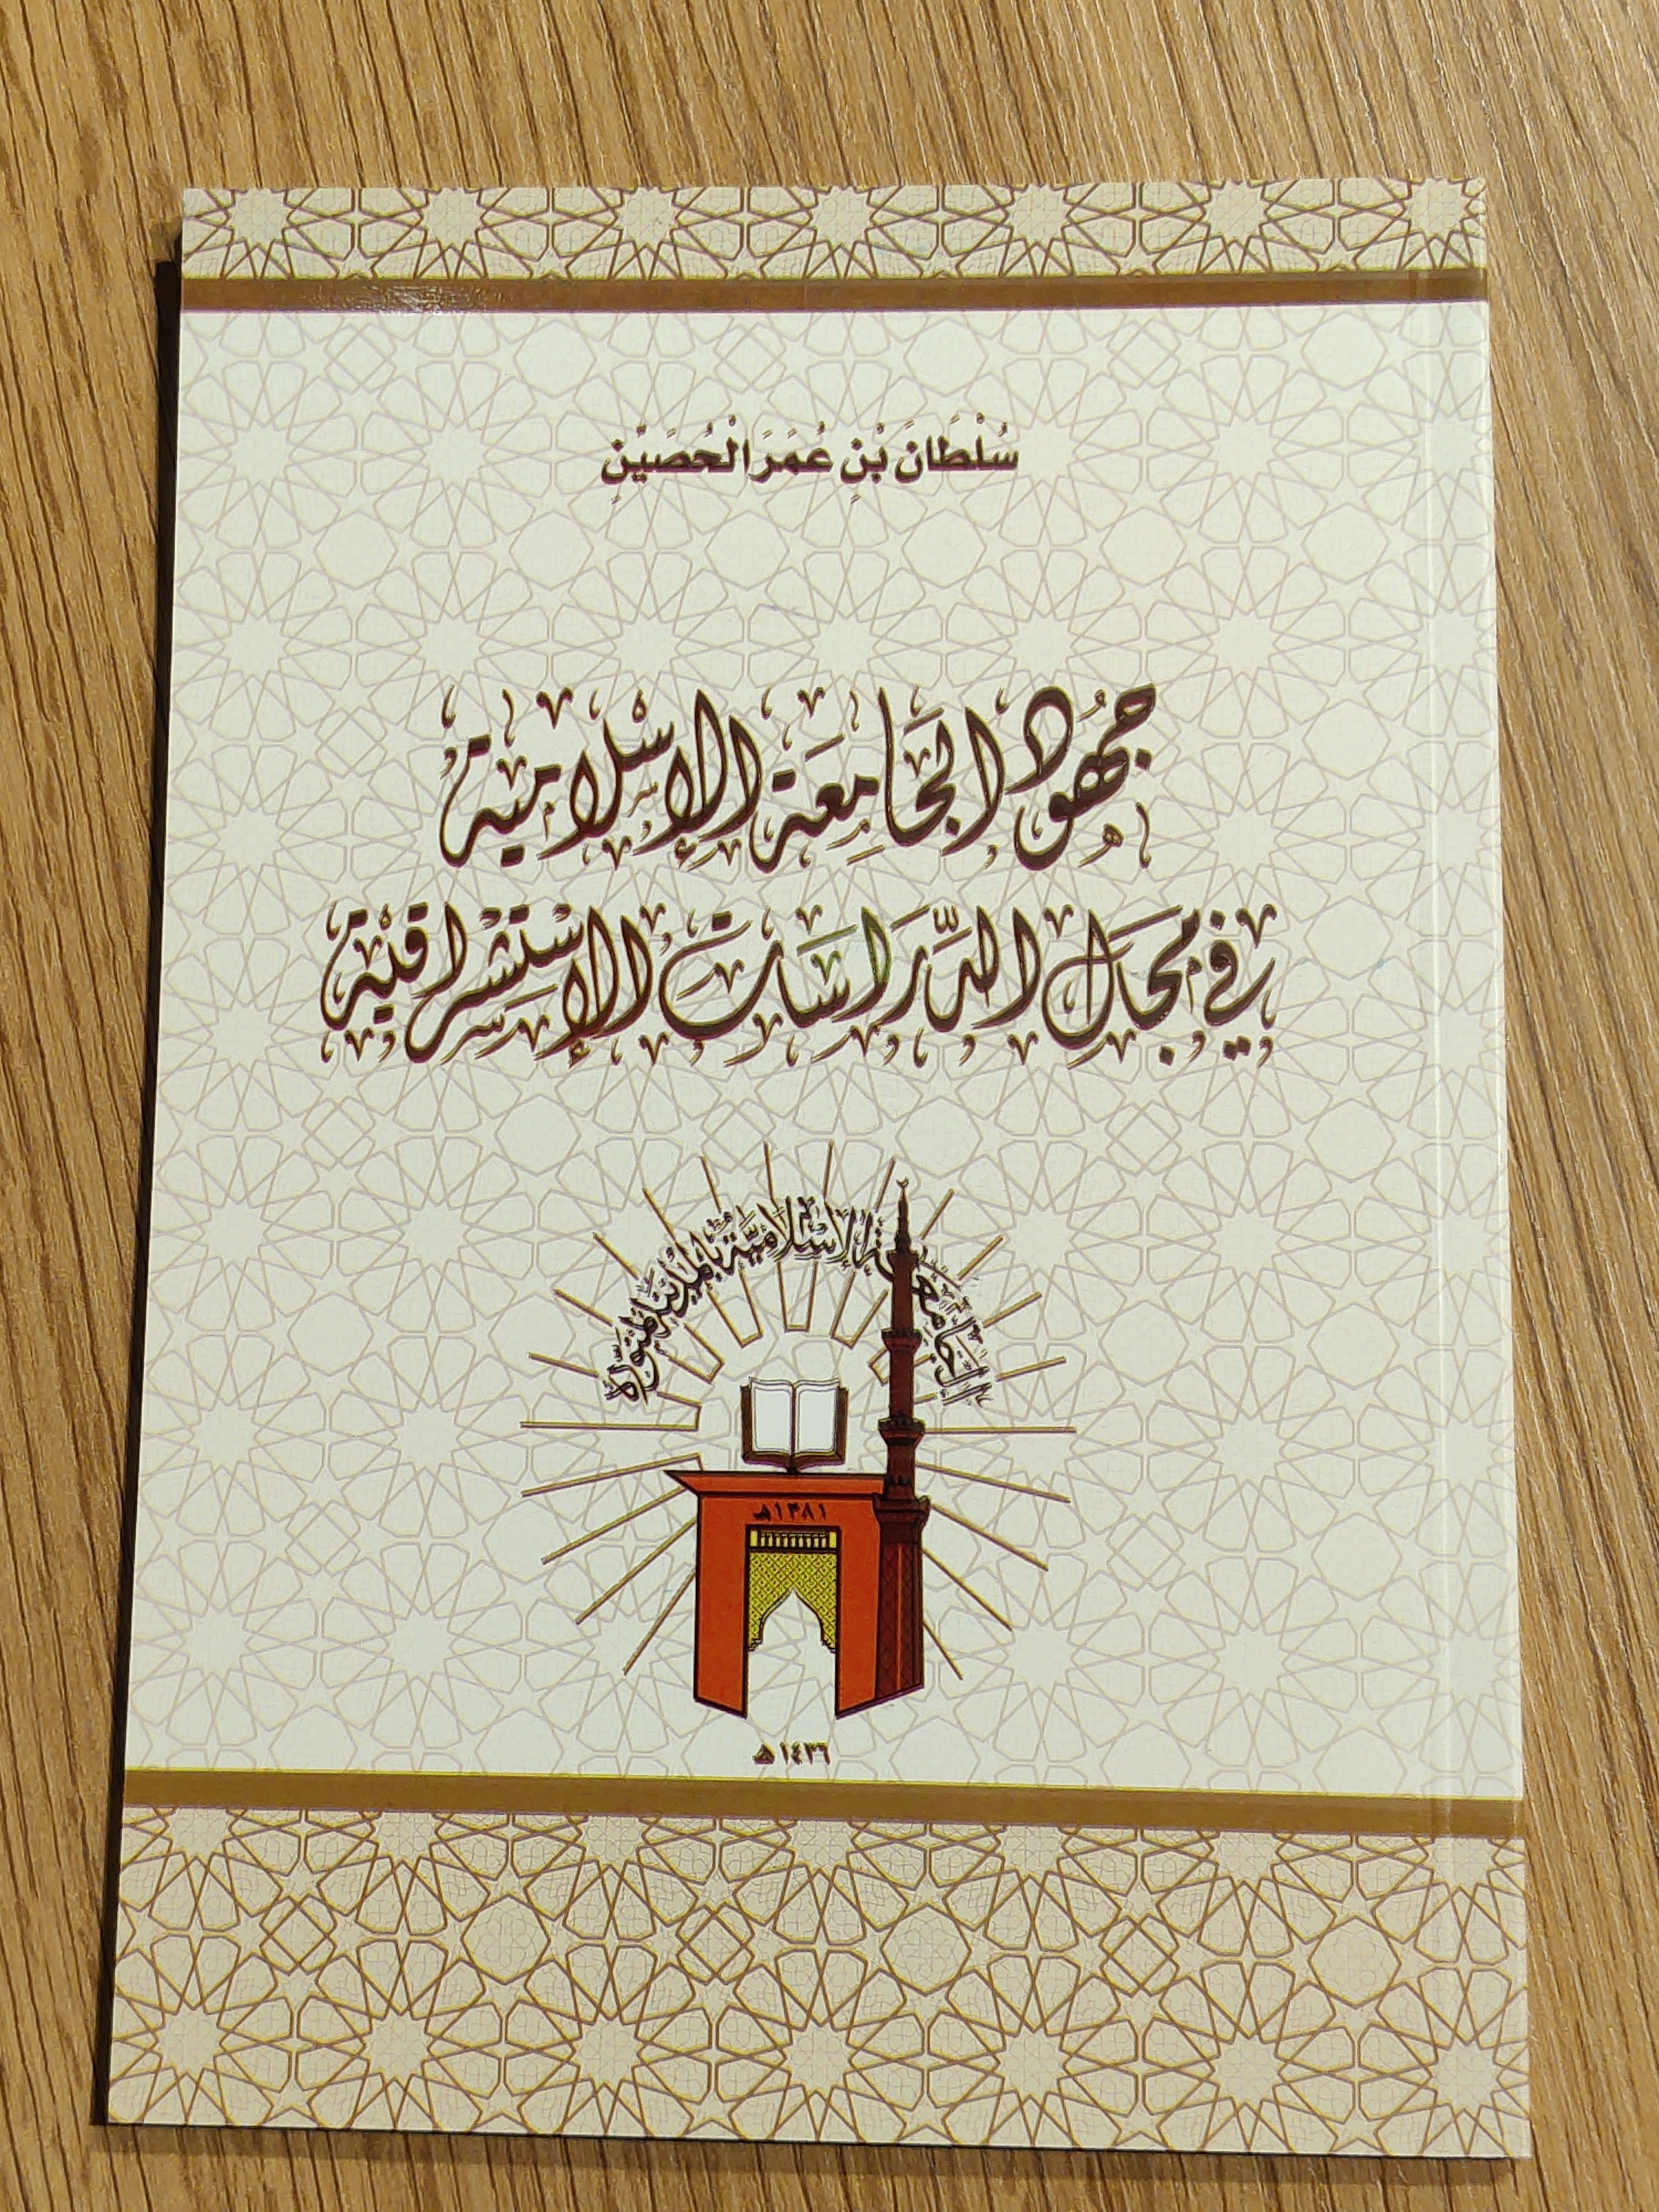 سُلْطَانَ بْنِ عُمَرَ الْحُصَيِّنِ
جُهُود الجَامِعَة الإِسْلامية
في مجَال الدِّرَاسَات الإِسْتَشْرَاقيَّة
الجامعة الإسلامية بالمدينة المنورة
١٣٨١هـ
١٤٣٦ هـ